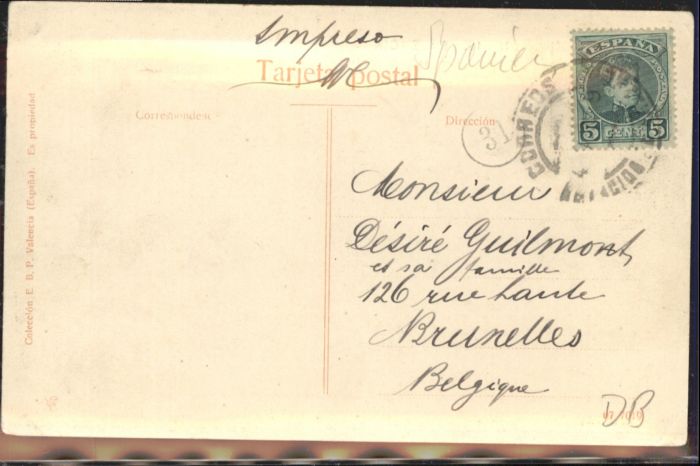 Impreso
Spanien
Tarjeta postal
Correspondencia
Dirección
31
ESPAÑA
5 CENT 5
CORREOS
Monsieur
Désiré Guilmont
et sa famille
126 rue haute
Bruxelles
Belgique
DB
Colección E. B. P. Valencia (España). Es propiedad